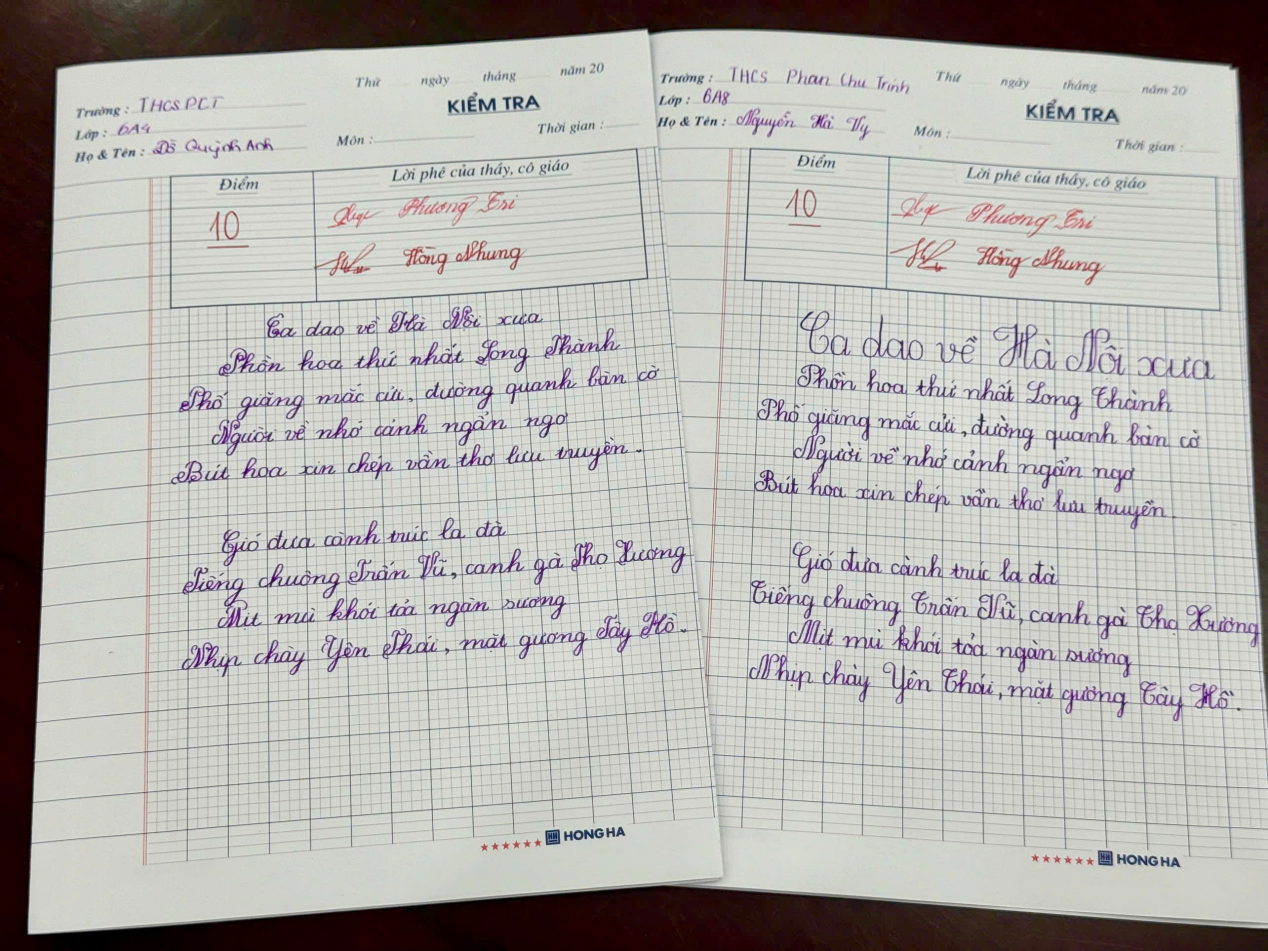 Thứ ngày tháng năm 20
Trường : THCS PCT
KIỂM TRA
Lớp : 6A4
Họ & Tên : Đỗ Quỳnh Anh
Môn :
Thời gian :
Điểm
Lời phê của thầy, cô giáo
10
Phương Tri
Hồng Nhung
Ca dao về Hà Nội xưa
Phồn hoa thứ nhất Long Thành
Phố giăng mắc cửi, đường quanh bàn cờ
Người về nhớ cảnh ngẩn ngơ
Bút hoa xin chép vần thơ lưu truyền.
Gió đưa cành trúc la đà
Tiếng chuông Trấn Vũ, canh gà Thọ Xương
Mịt mù khói tỏa ngàn sương
Nhịp chày Yên Thái, mặt gương Tây Hồ.
HONG HA
Thứ ngày tháng năm 20
Trường : THCS Phan Chu Trinh
KIỂM TRA
Lớp : 6A8
Họ & Tên : Nguyễn Hà Vy
Môn :
Thời gian :
Điểm
Lời phê của thầy, cô giáo
10
Phương Tri
Hồng Nhung
Ca dao về Hà Nội xưa
Phồn hoa thứ nhất Long Thành
Phố giăng mắc cửi, đường quanh bàn cờ
Người về nhớ cảnh ngẩn ngơ
Bút hoa xin chép vần thơ lưu truyền.
Gió đưa cành trúc la đà
Tiếng chuông Trấn Vũ, canh gà Thọ Xương
Mịt mù khói tỏa ngàn sương
Nhịp chày Yên Thái, mặt gương Tây Hồ.
HONG HA